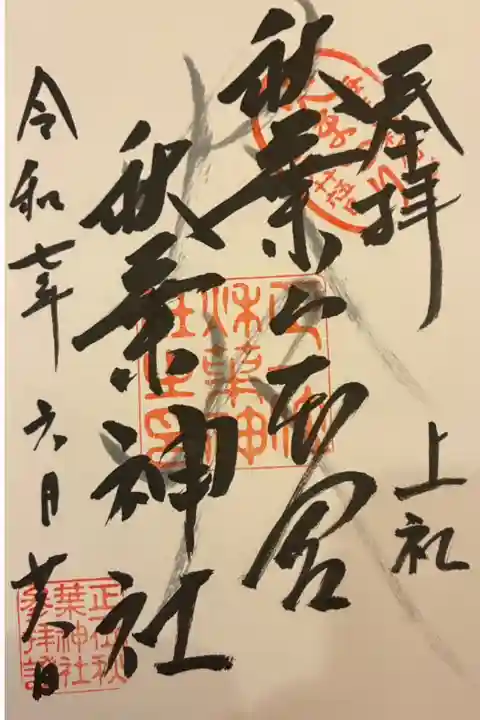 奉拝
上社
秋葉山本宮
秋葉神社
令和七年六月廿八日
正一位秋葉神社之印
正一位秋葉神社参拝證